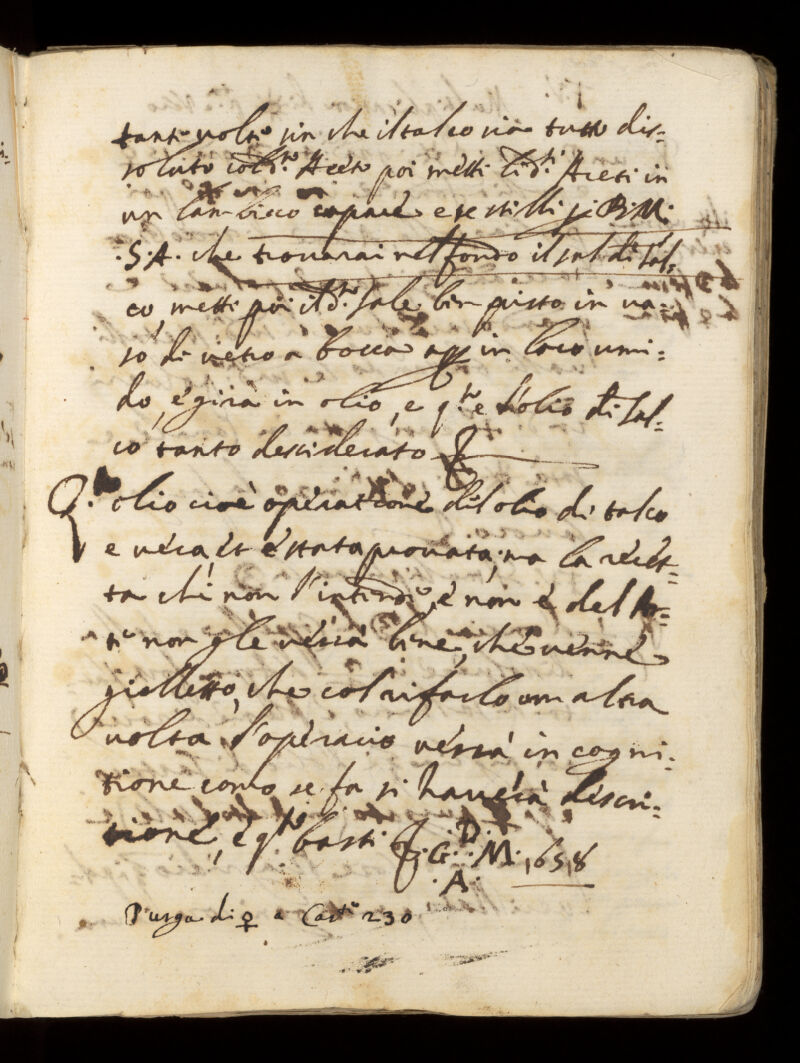 tante uolte sin che il talco sia tutto dis=
soluto col d.to Aceto poi metti li d.ti Aceti in
un lambicco capace e se stilli p B: M:
.S.A. che trouarai nel fondo il sal di tal,
co, metti poi il d.to sale ben pisto in ua=
so di uetro a bocca in loco umi=
do, é gira in olio, e q.to e l'olio di tal=
co tanto desciderato
Q.to olio cioé operatione dil olio di talco
e uera, et é stata prouata, ma la récét=
ta chi non l'intende, é non é del Ar=
te non gle uérrá bene, ché uénné
giolletto, che col rifarlo um altra
uolta l'operario uérrá in cogni=
tione como se fa si hauérá discri=
tioné, é q.to basti
.G. D. M. 1658
.A.
Purga di ♀ a Cart.e 230